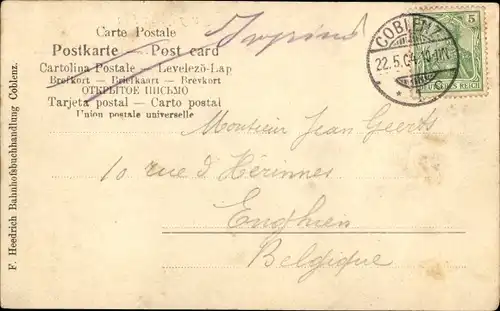 Carte Postale
Postkarte — Post card
Cartolina Postale — Levelező-Lap
Brefkort — Briefkaart — Brevkort
ОТКРЫТОЕ ПИСЬМО
Tarjeta postal — Carto postal
Union postale universelle
COBLENZ
22.5.04
5
REICH
Monsieur Jean Geerts
10 rue d'Hérinnes
Enghien
Belgique
F. Heedrich Bahnhofsbuchhandlung Coblenz.